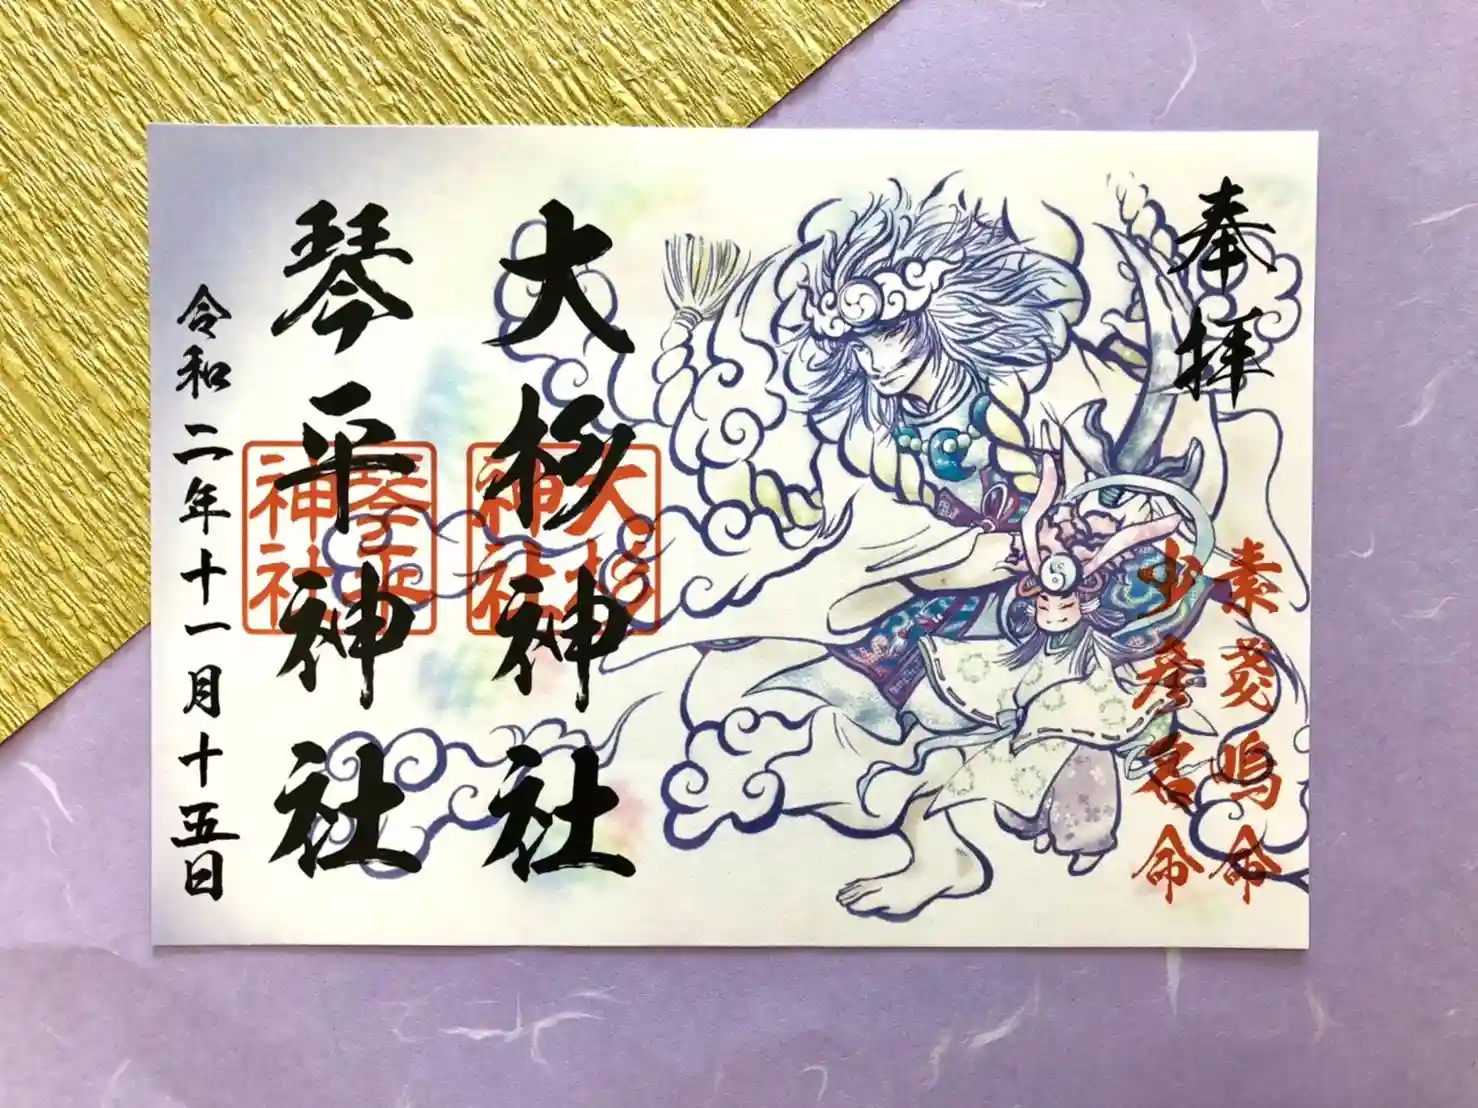 奉拝
素戔嗚命
少彦名命
大杉神社
大杉神社
琴平神社
琴平神社
令和二年十一月十五日